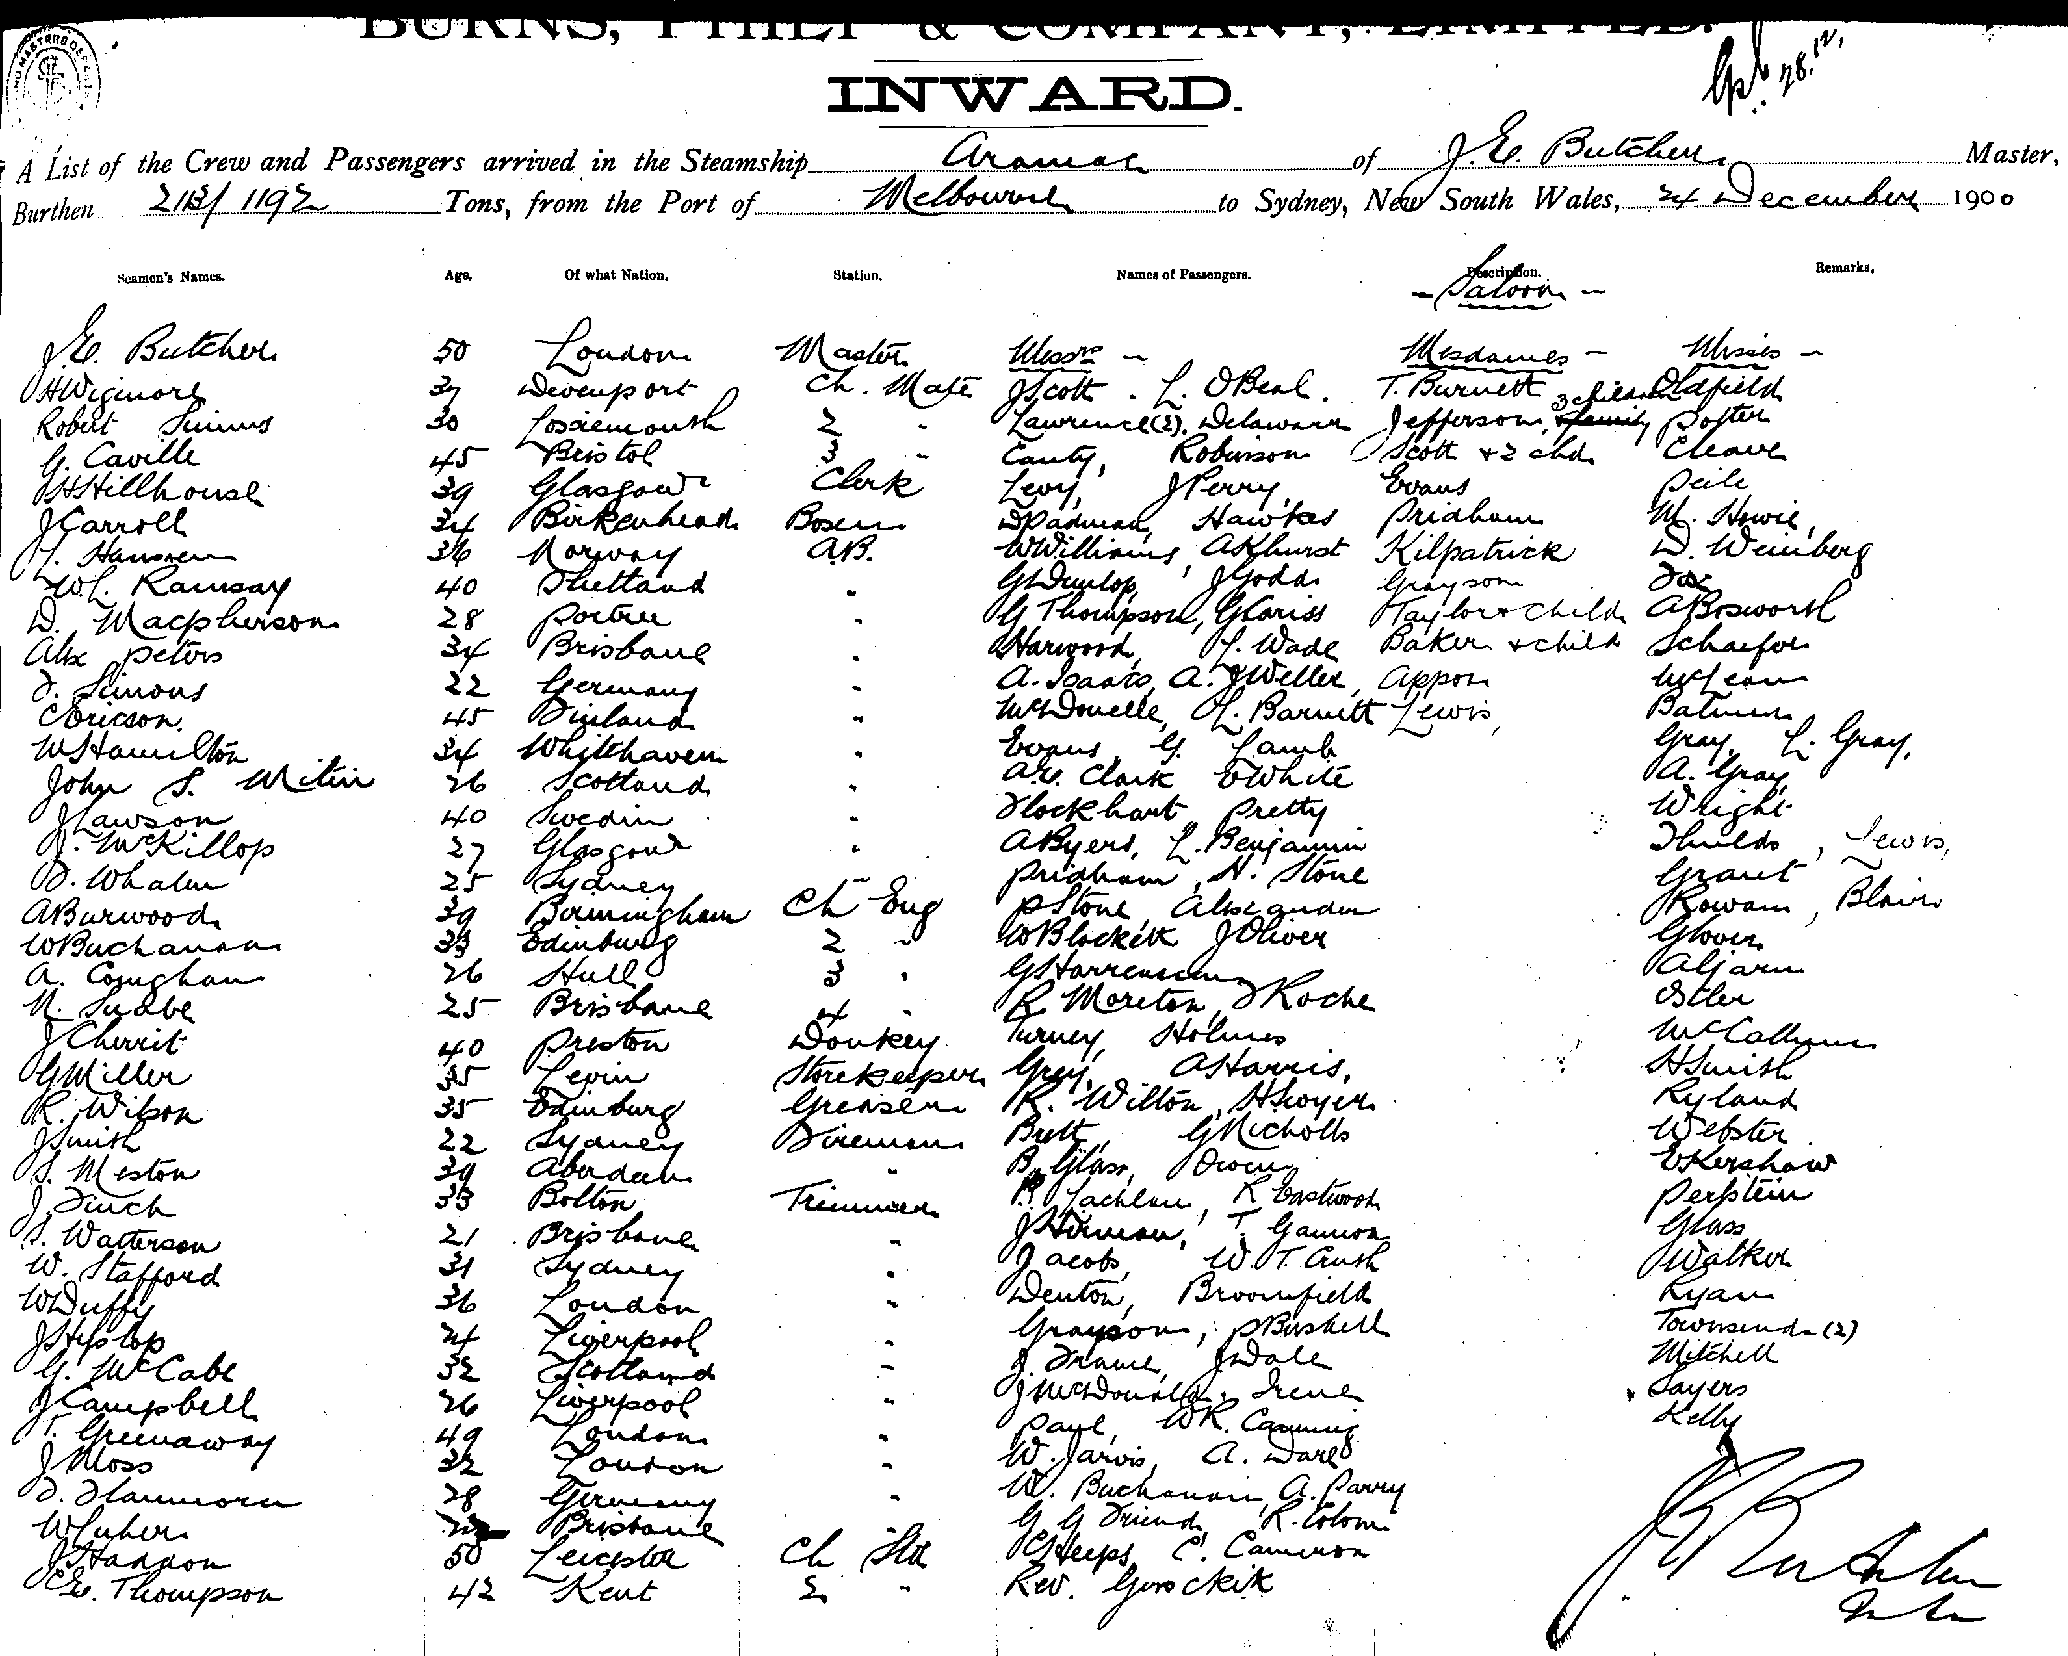 BURNS, PHILP & COMPANY, LIMITED.
INWARD.
28.12.
A List of the Crew and Passengers arrived in the Steamship Aramac of J. E. Butcher Master,
Burthen 2113/1192 Tons, from the Port of Melbourne to Sydney, New South Wales, 24 December 1900
Seamen's Names. Age. Of what Nation. Station. Names of Passengers. Description. Remarks.
- Saloon -
J. E. Butcher 50 London Master Messrs - Mesdames - Misses -
H Wigmore 37 Devenport Ch. Mate J Scott. L. O'Beal. T. Burnett Oldfield
Robert Simms 30 Lossiemouth 2 " Lawrence (2), Delaware Jefferson, 3 children Potter
G. Caville 45 Bristol 3 " Canty, Robinson Scott + 2 chd. Cleave
H Hillhouse 39 Glasgow Clerk Levy, J Perry, Evans Peile
J Carroll 34 Birkenhead Bosen D Padman, Hawkes Pridham M. Howie,
L. Hansen 36 Norway A.B. W Williams, Akhurst Kilpatrick D. Weinberg
W. L. Ramsay 40 Shetland " G Dunlop, J Godd Grayson
D. Macpherson 28 Portree " G Thompson, G Cariss Taylor + child A Bosworth
Alex Peters 34 Brisbane " Harwood, L. Wade Baker + child Schaefer
F. Simons 22 Germany " A. Isaacs, A. J Weller, Appon McLean
C Ericson. 45 Finland " McDouelle, L. Barnett Lewis, Batmen
W Hamilton 34 Whitehaven " Evans, G. Lamb Gray, L. Gray,
John S. Miten 26 Scotland " A. E. Clark E White A. Gray,
J Lawson 40 Sweden " F Lockhart Pretty Wright
J. McKillop 27 Glasgow " A Byers, L. Benjamin Shields, Lewis,
F. Whalen 25 Sydney " Pridham, H. Stone Grant
A Burwood 39 Birmingham Ch Eng P Stone, Alexander Rowan, Blair
W Buchanan 33 Edinburg 2 " W Blockett J Oliver Glover
A. Coughan 26 Hull 3 " Aljarn
N. Suabe 25 Brisbane 4 " R Moreton, F Roche Istler
J Cherrit 40 Preston Donkey Turney, Holmes McCalhum
G Miller 35 Levin Storekeeper Grey, A Harris, H Smith
R. Wilson 35 Edinburg Greaser R. Wilton, H Swyer Ryland
J Smith 22 Sydney Fireman Brett, G Nicholls Webster
S. Meston 39 Aberdeen " B. Glass, Owen E Kershaw
J Finch 33 Bolton Trimmer R. Lachlan, R Eastwood Perstein
S. Watterson 21 Brisbane " J Hinman, T. Gannon Glass
W. Stafford 31 Sydney " J acobs, W. T. Aush Walker
W Duffy 36 London " Denton, Broomfield Ryan
J Hyslop 24 Liverpool " Grayson, P Bushell Townsend (2)
G. McCabe 32 Scotland " J. Frame, J Dale Mitchell
J Campbell 26 Liverpool " J McDonald, Irene Sayers
T. Greenaway 49 London " Paul, W R. Canning Kelly
J Moss 32 London " W. Jarvis, A. Ware
F. Flammorn 28 Germany " W. Buchanan, A. Parry
W Usher Brisbane " G G Friend, R. Colom
J Haddon 50 Leicester Ch Std C Heeps, C. Cameron
C E. Thompson 42 Kent 2 " Rev. Goosckik
J E Butcher
Master